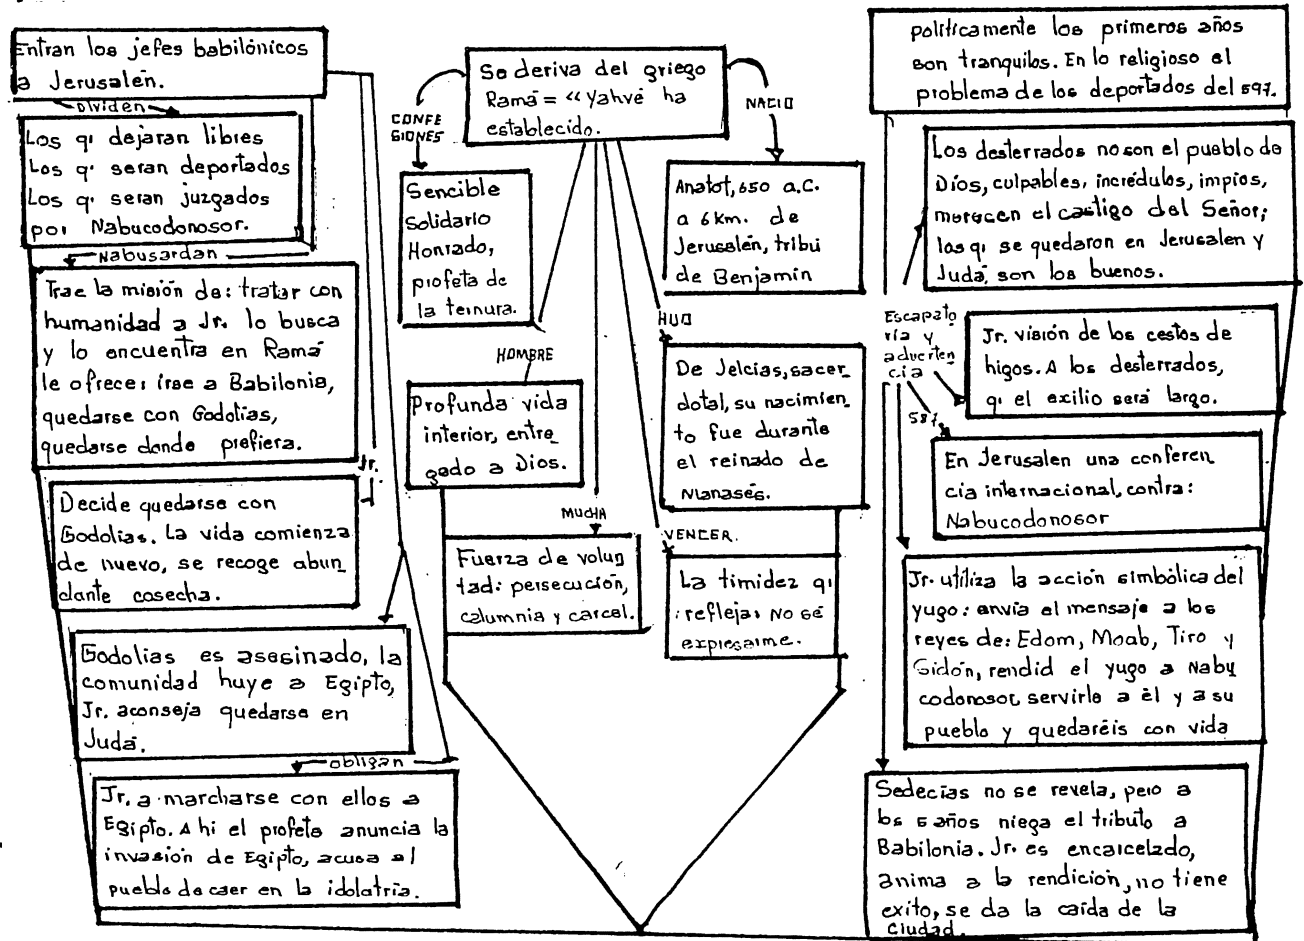 Entran los jefes babilónicos
a Jerusalén.
Dividen
Los q' dejaran libres
Los q' seran deportados
Los q' seran juzgados
por Nabucodonosor.
Nabusardan
Trae la misión de: tratar con
humanidad a Jr. lo busca
y lo encuentra en Ramá
le ofrece: irse a Babilonia,
quedarse con Godolias,
quedarse donde prefiera.
Jr.
Decide quedarse con
Godolias. La vida comienza
de nuevo, se recoge abun
dante cosecha.
Godolias es asesinado, la
comunidad huye a Egipto,
Jr. aconseja quedarse en
Judá.
obligan
Jr. a marcharse con ellos a
Egipto. Ahi el profeta anuncia la
invasión de Egipto, acusa al
pueblo de caer en la idolatría.
Se deriva del griego
Ramá = “Yahvé ha
establecido.
CONFE
SIONES
Sencible
Solidario
Honrado,
profeta de
la ternura.
NACIO
Anatot, 650 a.C.
a 6 km. de
Jerusalén, tribu
de Benjamin
HOMBRE
Profunda vida
interior, entre
gado a Dios.
HIJO
De Jelcias, sacer
dotal, su nacimien
to fue durante
el reinado de
Manasés.
MUCHA
Fuerza de volun
tad: persecución,
calumnia y carcel.
VENCER.
La timidez q'
refleja: No sé
expresarme.
políticamente los primeros años
son tranquilos. En lo religioso el
problema de los deportados del 597.
Los desterrados no son el pueblo de
Díos, culpables, incrédulos, impíos,
merecen el castigo del Señor;
los q' se quedaron en Jerusalen y
Judá, son los buenos.
Escapato
ria y
adverten
cia
Jr. visión de los cestos de
higos. A los desterrados,
q' el exilio será largo.
587
En Jerusalen una conferen
cia internacional, contra:
Nabucodonosor
Jr. utiliza la acción simbólica del
yugo: envía el mensaje a los
reyes de: Edom, Moab, Tiro y
Sidón, rendid el yugo a Nabu
codonosor, servirle a él y a su
pueblo y quedaréis con vida
Sedecías no se revela, pero a
los 5 años niega el tributo a
Babilonia. Jr. es encarcelado,
anima a la rendición, no tiene
exito, se da la caída de la
ciudad.